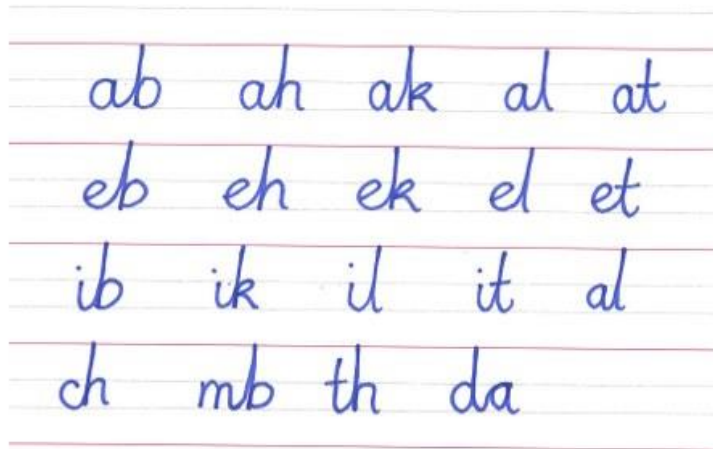 ab ah ak al at
eb eh ek el et
ib ik il it al
ch mb th da